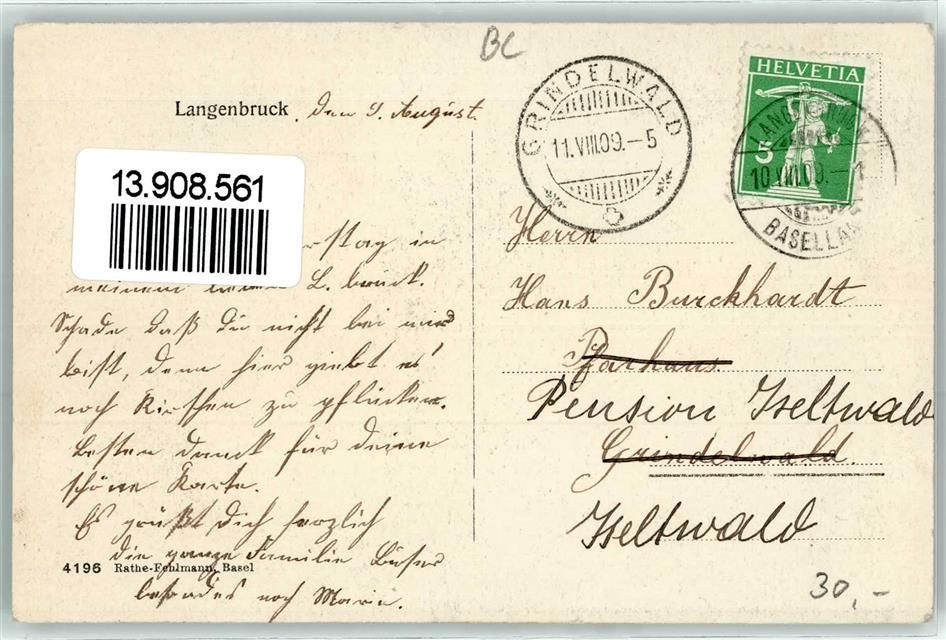 BC
Langenbruck, den 9. August.
13.908.561
meinem L. bruck.
Schade daß du nicht bei uns
bist, denn hier giebt es
noch Kirschen zu pflücken.
Besten Dank für deine
schöne Karte.
Es grüßt Dich herzlich
die ganze Familie
noch Marie.
4196 Rathe-Fehlmann, Basel
GRINDELWALD
11.VIII.09.-5
HELVETIA
5
LANGENBRUCK
10.VIII.09.-1
BASELLAND
Herrn
Hans Burckhardt
Pfarhaus
Pension Iseltwald
Grindelwald.
Iseltwald
30,-